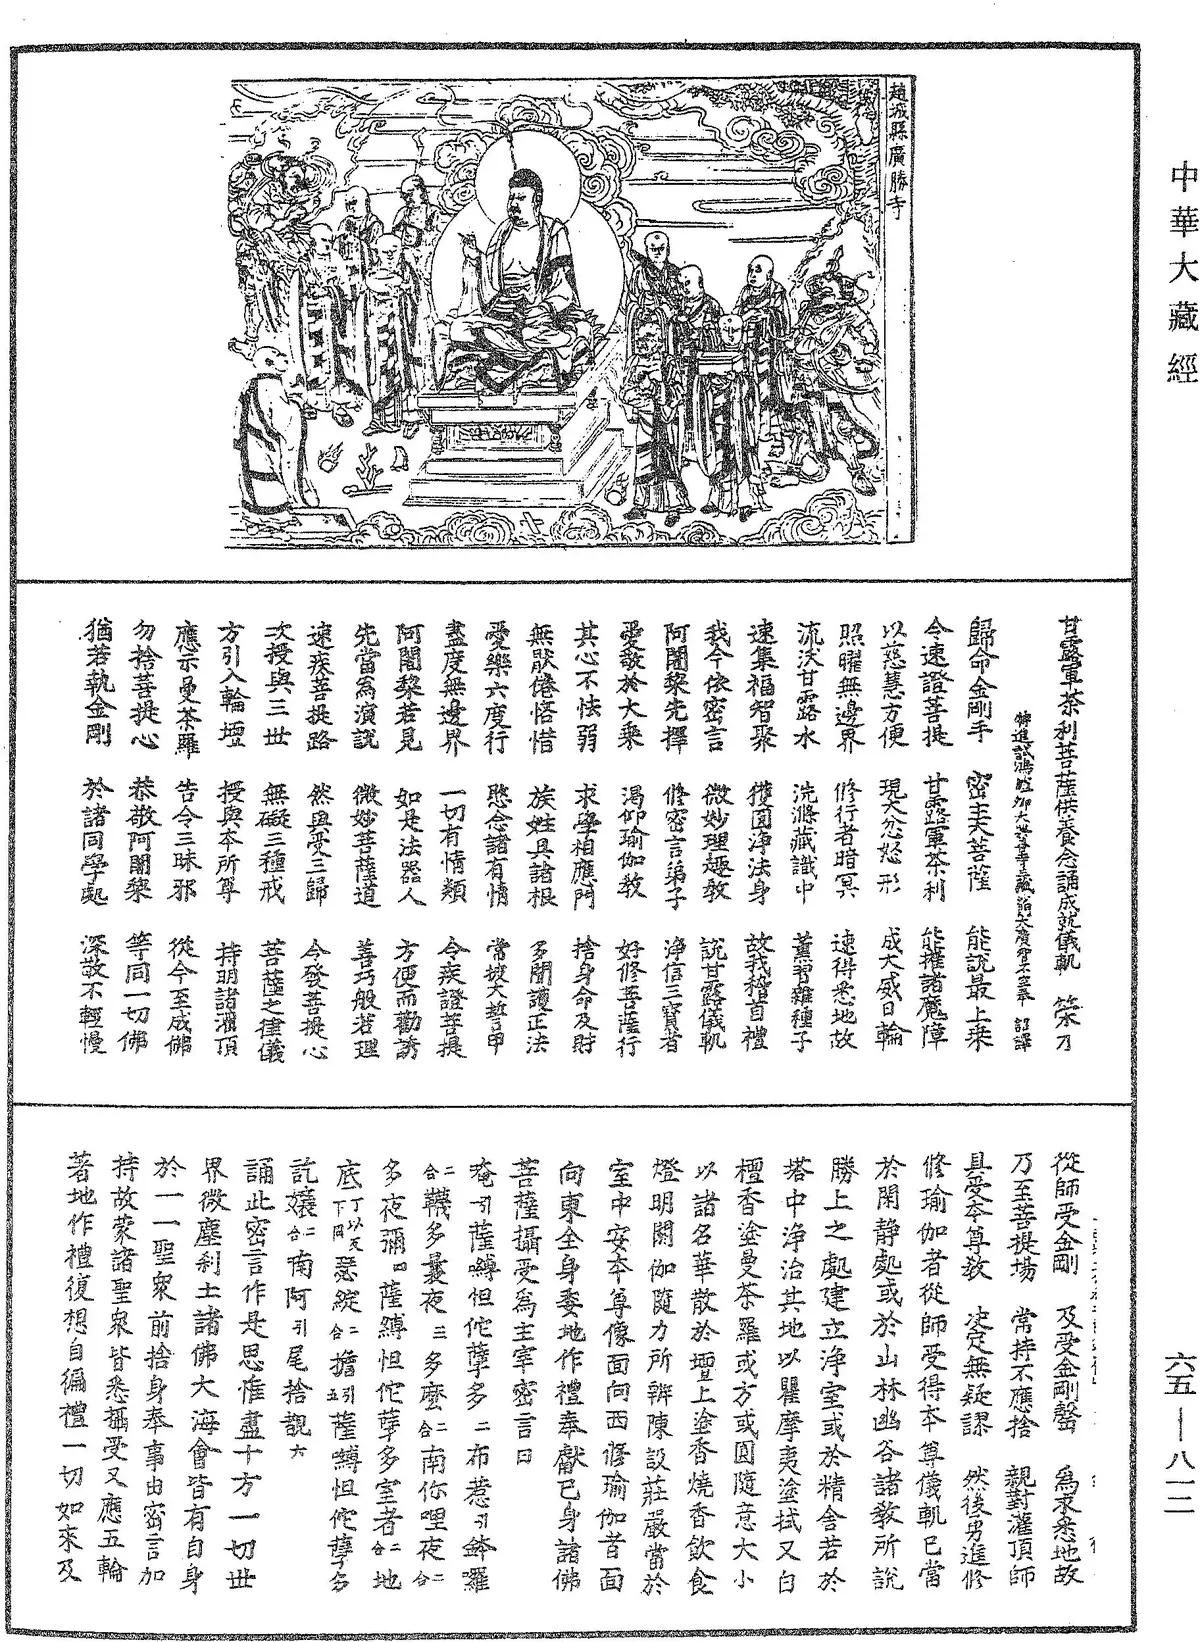 中華大藏經
趙城縣廣勝寺
甘露軍茶利菩薩供養念誦成就儀軌
歸命金剛手 密主大菩薩 能說最上乘
令速證菩提 甘露軍茶利 能摧諸魔障
以慈慧方便 現大忿怒形 成大威日輪
照曜無邊界 修行者暗冥 速得悉地故
流沃甘露水 洗滌藏識中 薰習雜種子
速集福智聚 獲圓淨法身 故我稽首禮
我今依密言 微妙理趣教 說甘露儀軌
阿闍黎先擇 修密言弟子 淨信三寶者
愛敬於大乘 渴仰瑜伽教 好修菩薩行
其心不怯弱 求學相應門 捨身命及財
無猒倦悋惜 族姓具諸根 多聞護正法
愛樂六度行 愍念諸有情 常披大誓甲
盡度無邊界 一切有情類 令疾證菩提
阿闍黎若見 如是法器人 方便而勸誘
先當為演說 微妙菩薩道 善巧般若理
速疾菩提路 然與受三歸 令發菩提心
次授與三世 無礙三種戒 菩薩之律儀
方引入輪壇 授與本所尊 持明諸灌頂
應示曼茶羅 告令三昧邪 從今至成佛
勿捨菩提心 恭敬阿闍黎 等同一切佛
猶若執金剛 於諸同學處 深敬不輕慢
從師受金剛 及受金剛罄 為求悉地故
乃至菩提場 常持不應捨 親對灌頂師
具受本尊教 決定無疑謬 然後勇進修
修瑜伽者從師受得本尊儀軌已當
於閑靜處或於山林幽谷諸教所說
勝上之處建立淨室或於精舍若於
塔中淨治其地以瞿摩夷塗拭又白
檀香塗曼茶羅或方或圓隨意大小
以諸名華散於壇上塗香燒香飲食
燈明閼伽隨力所辦陳設莊嚴當於
室中安本尊像面向西修瑜伽者面
向東全身委地作禮奉獻己身諸佛
菩薩攝受為主宰密言曰
唵引薩嚩怛佗孽多二布惹引鉢囉
二合韈多曩夜三多麼二合南你哩夜二合
多夜彌四薩嚩怛佗孽多室者二合地
底丁以反下同瑟綻二合擔引五薩嚩怛佗孽多
訖孃二合南阿引尾捨覩六
誦此密言作是思惟盡十方一切世
界微塵剎土諸佛大海會皆有自身
於一一聖眾前捨身奉事由密言加
持故蒙諸聖眾皆悉攝受又應五輪
著地作禮復想自徧禮一切如來及
六五—八一二